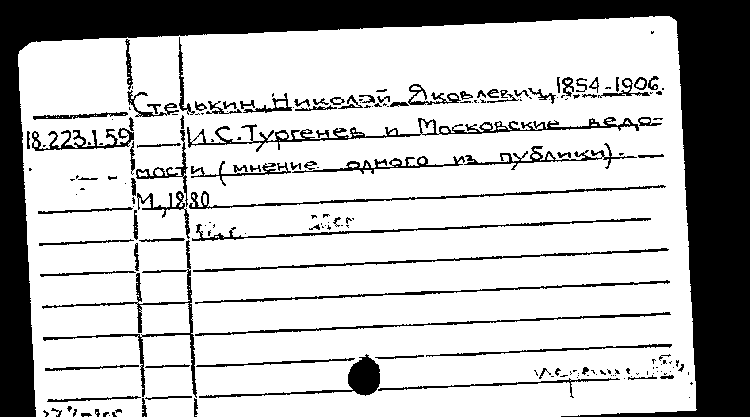 Стечькин, Николай Яковлевич, 1854-1906.
18.223.1.59 И.С.Тургенев и Московские ведо-
мости (мнение одного из публики).-
М., 1880.